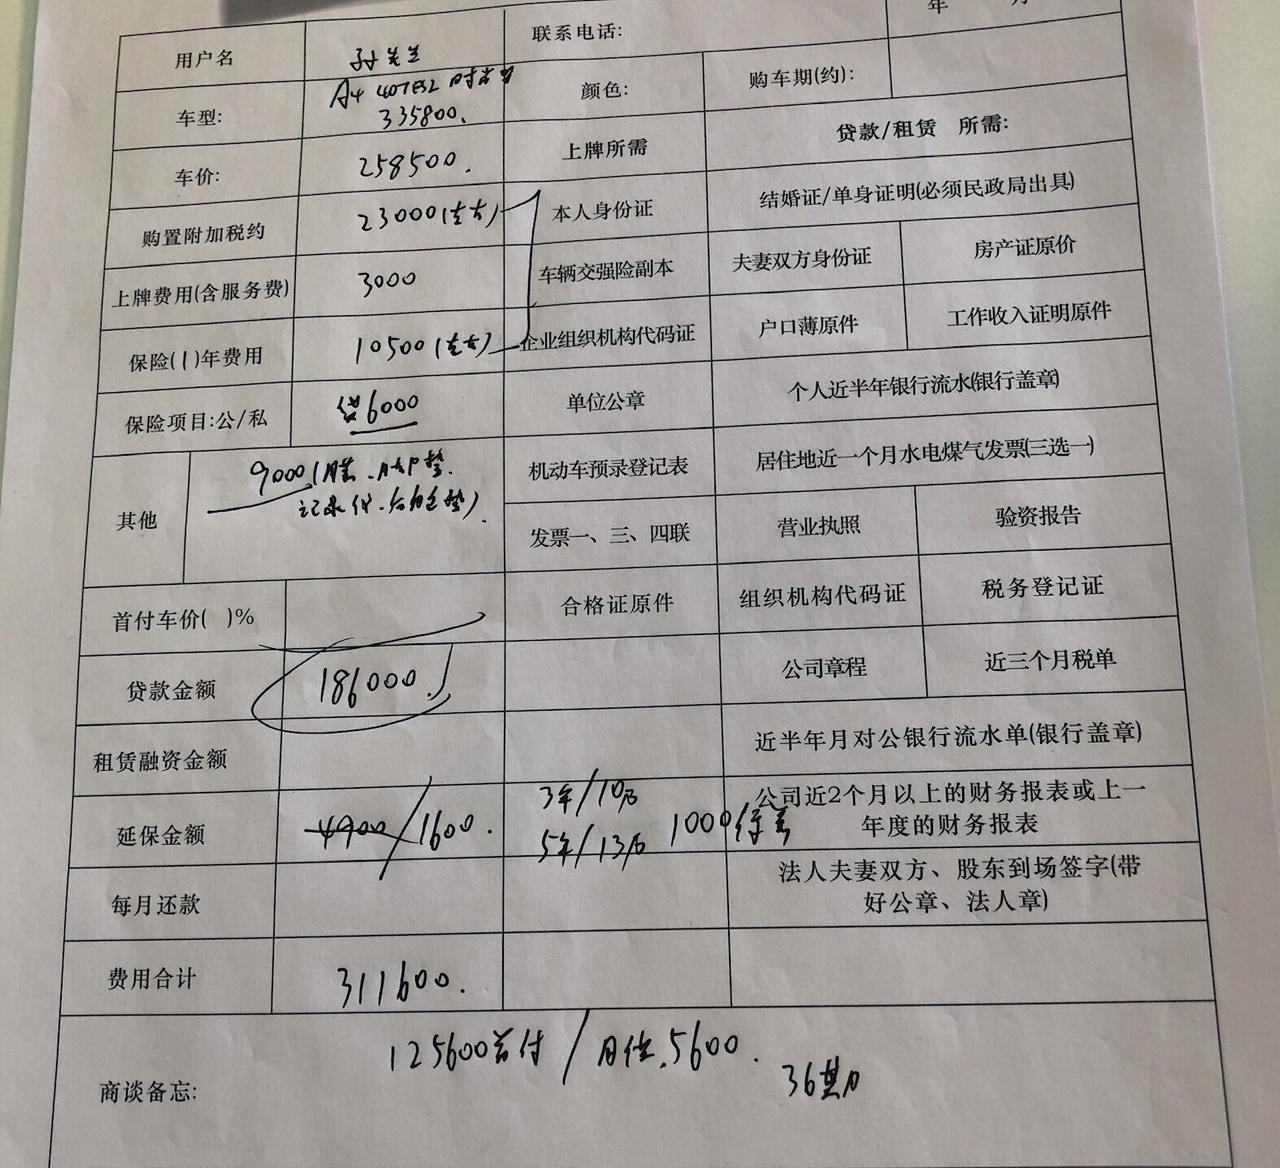 年 月
用户名 孙先生 联系电话:
车型: A4 40TFSI 时尚型 335800. 颜色: 购车期(约):
车价: 258500. 上牌所需 贷款/租赁 所需:
购置附加税约 23000 本人身份证 结婚证/单身证明(必须民政局出具)
上牌费用(含服务费) 3000 车辆交强险副本 夫妻双方身份证 房产证原价
保险(1)年费用 10500 企业组织机构代码证 户口薄原件 工作收入证明原件
保险项目:公/私 6000 单位公章 个人近半年银行流水(银行盖章)
其他 9000(膜.脚垫. 机动车预录登记表 居住地近一个月水电煤气发票(三选一)
记录仪.后备垫) 发票一、三、四联 营业执照 验资报告
首付车价( )% 合格证原件 组织机构代码证 税务登记证
贷款金额 186000. 公司章程 近三个月税单
租赁融资金额 近半年月对公银行流水单(银行盖章)
延保金额 4900/1600. 3年/10万 公司近2个月以上的财务报表或上一
5年/13万 1000保养 年度的财务报表
每月还款 法人夫妻双方、股东到场签字(带
好公章、法人章)
费用合计 311600.
商谈备忘: 125600首付/月供.5600.
36期